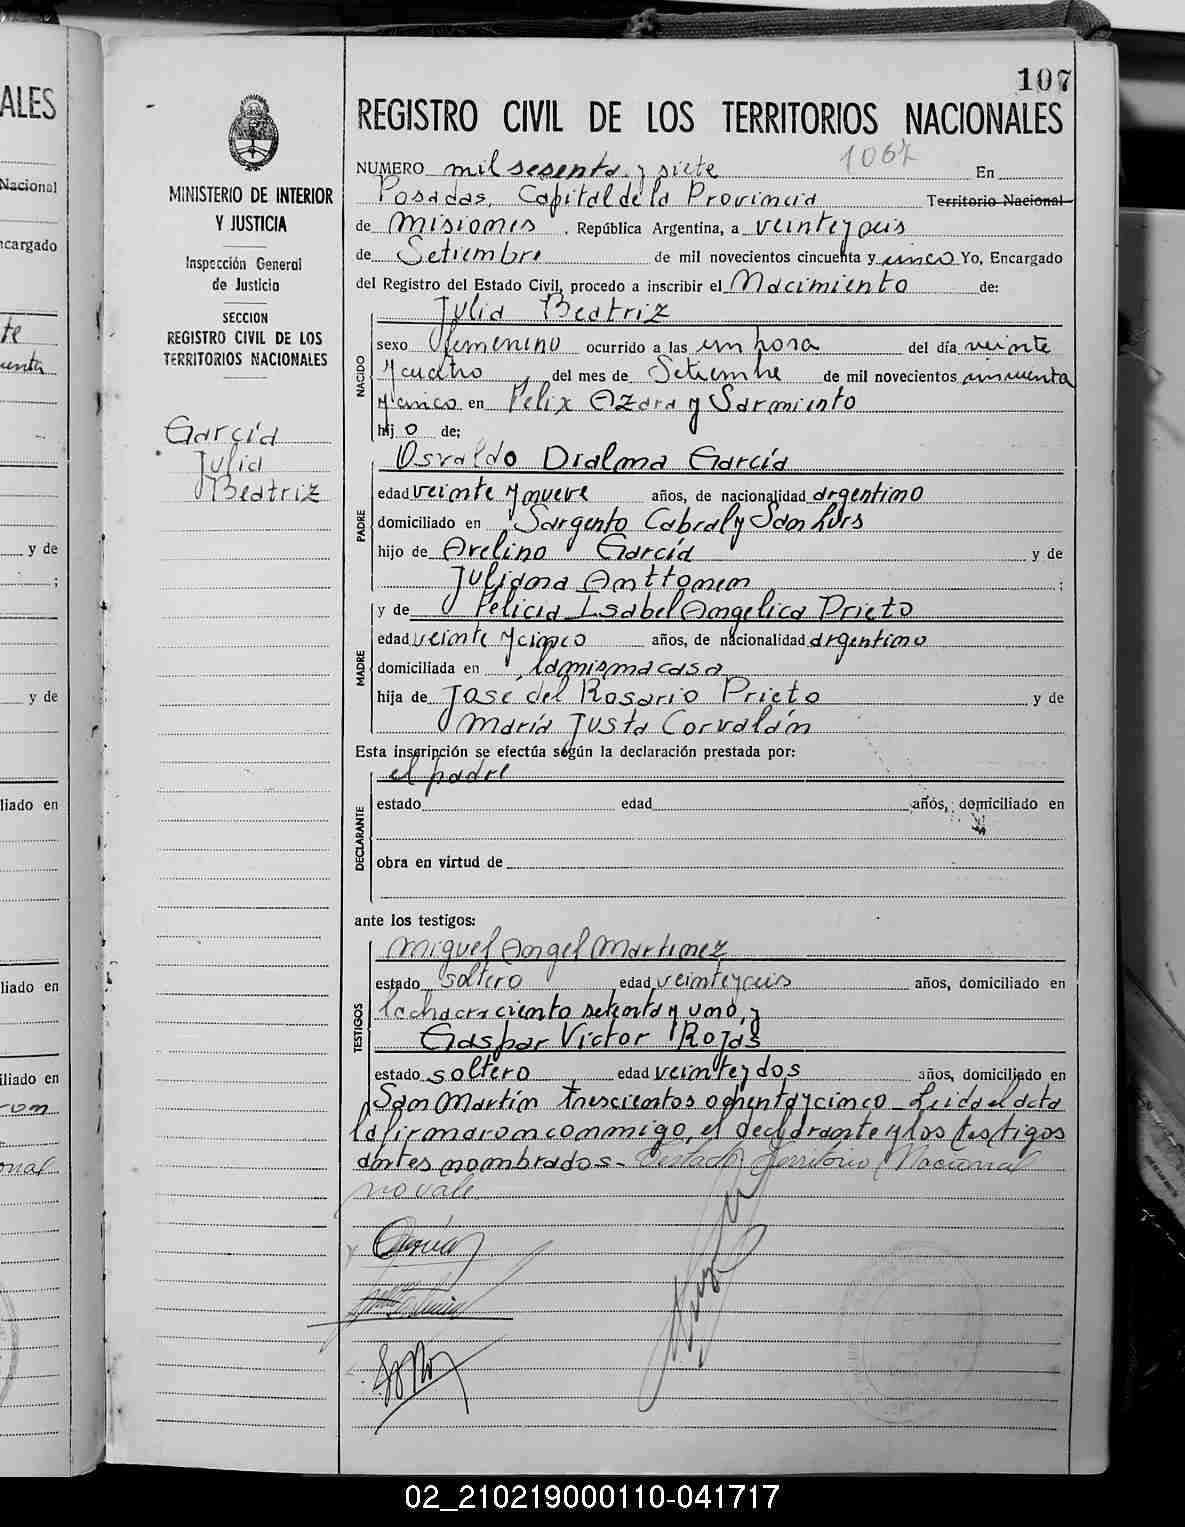 ALES
Nacional
ncargado
te
uenta
y de
;
y de
liado en
liado en
iliado en
ron
onal
107
REGISTRO CIVIL DE LOS TERRITORIOS NACIONALES
MINISTERIO DE INTERIOR
Y JUSTICIA
Inspección General
de Justicia
SECCION
REGISTRO CIVIL DE LOS
TERRITORIOS NACIONALES
García
Julia
Beatriz
1067
NUMERO mil sesenta y siete En
Posadas, Capital de la Provincia Territorio Nacional
de Misiones, República Argentina, a veinteyseis
de Setiembre de mil novecientos cincuenta y cinco Yo, Encargado
del Registro del Estado Civil, procedo a inscribir el Nacimiento de:
NACIDO
Julia Beatriz
sexo femenino ocurrido a las un hora del día veinte
y cuatro del mes de Setiembre de mil novecientos cincuenta
y cinco en Felix Azara y Sarmiento
hij o de:
PADRE
Osvaldo Dialma García
edad veinte y nueve años, de nacionalidad argentino
domiciliado en Sargento Cabral y San Luis
hijo de Avelino García y de
Juliana Anttonen ;
MADRE
y de Felicia Isabel Angelica Prieto
edad veinte y cinco años, de nacionalidad argentino
domiciliada en la misma casa
hija de José del Rosario Prieto y de
María Justa Corvalán
Esta inscripción se efectúa según la declaración prestada por:
DECLARANTE
el padre
estado edad años, domiciliado en
obra en virtud de
ante los testigos:
TESTIGOS
Miguel Angel Martinez
estado soltero edad veinteyseis años, domiciliado en
la chacra ciento setenta y uno, y
Gaspar Victor Rojas
estado soltero edad veinteydos años, domiciliado en
San Martin trescientos ochentaycinco Leida el acta
la firmaron conmigo, el declarante y los testigos
antes nombrados- Testado Territorio Nacional
no vale
García
02_210219000110-041717